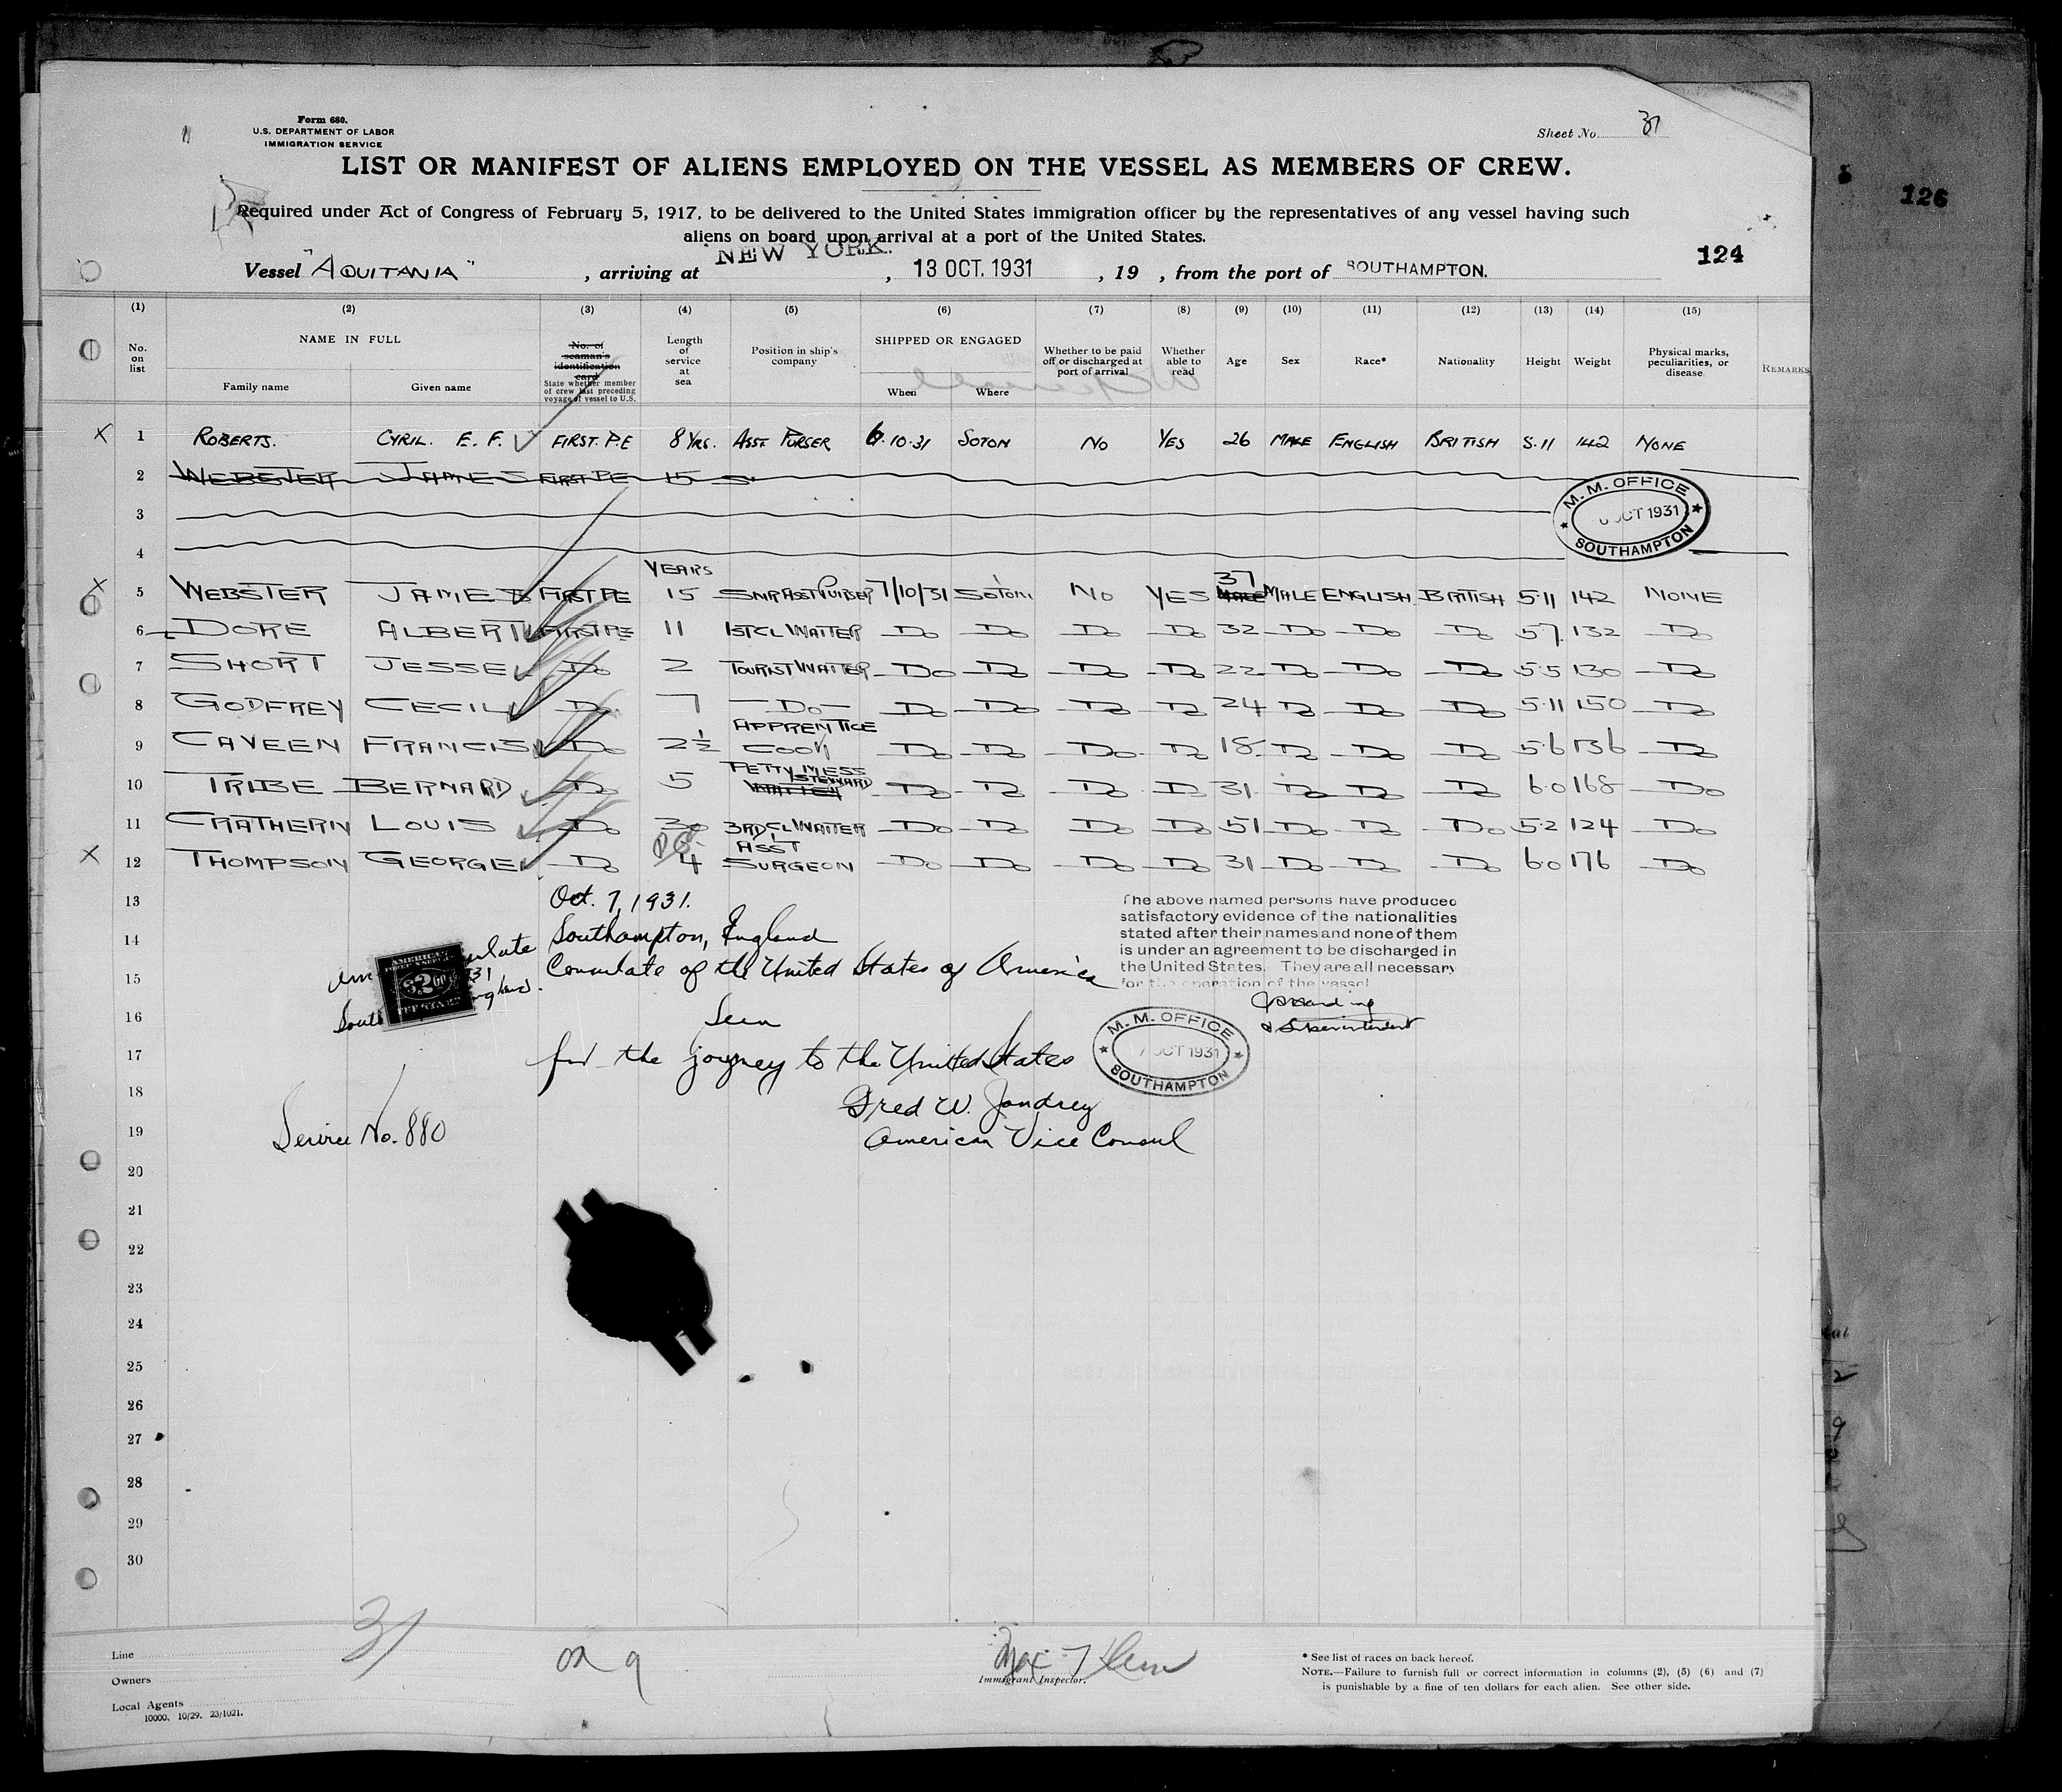 Form 680.
U.S. DEPARTMENT OF LABOR
IMMIGRATION SERVICE
Sheet No. 31
LIST OR MANIFEST OF ALIENS EMPLOYED ON THE VESSEL AS MEMBERS OF CREW.
Required under Act of Congress of February 5, 1917, to be delivered to the United States immigration officer by the representatives of any vessel having such
aliens on board upon arrival at a port of the United States.
126
124
Vessel "AQUITANIA", arriving at NEW YORK., 13 OCT. 1931, 19 , from the port of SOUTHAMPTON.
(1) (2) (3) (4) (5) (6) (7) (8) (9) (10) (11) (12) (13) (14) (15)
No. on list
NAME IN FULL
Family name Given name
No. of seaman's identification card
State whether member of crew last preceding voyage of vessel to U.S.
Length of service at sea
Position in ship's company
SHIPPED OR ENGAGED
When Where
Whether to be paid off or discharged at port of arrival
Whether able to read
Age
Sex
Race*
Nationality
Height
Weight
Physical marks, peculiarities, or disease
REMARKS
X 1 ROBERTS. CYRIL. E. F. FIRST. P.E 8 YRS. ASST PURSER 6.10.31 SOTON NO YES 26 MALE ENGLISH BRITISH 5.11 142 NONE
2 WEBSTER JAMES FIRST PE 15 S
3
M. M. OFFICE OCT 1931 SOUTHAMPTON
4
YEARS
X 5 WEBSTER JAMES FIRST PE 15 SNR ASST PURSER 7/10/31 SOTON NO YES 37 MALE ENGLISH BRITISH 5.11 142 NONE
6 DORE ALBERT FIRST PE 11 1ST CL WAITER DO DO DO DO 32 DO DO DO 5.7. 132 DO
7 SHORT JESSE DO 2 TOURIST WAITER DO DO DO DO 22 DO DO DO 5.5 130 DO
8 GODFREY CECIL DO 7 DO DO DO DO DO 24 DO DO DO 5.11 150 DO
9 CAVEEN FRANCIS DO 2½ APPRENTICE COOK DO DO DO DO 18 DO DO DO 5.6 136 DO
10 TRIBE BERNARD DO 5 PETTY MESS STEWARD WAITER DO DO DO DO 31 DO DO DO 6.0 168 DO
11 CRATHERN LOUIS DO 30 3RD CL WAITER DO DO DO DO 51 DO DO DO 5.2 124 DO
X 12 THOMPSON GEORGE DO 4 ASST SURGEON DO DO DO DO 31 DO DO DO 6.0 176 DO
13 Oct. 7, 1931.
14 Southampton, England
15 Consulate of the United States of America
16 Seen
17 for the journey to the United States
18 Fred W. Jandrey
19 American Vice Consul
Service No. 880
The above named persons have produced
satisfactory evidence of the nationalities
stated after their names and none of them
is under an agreement to be discharged in
the United States. They are all necessary
for the operation of the vessel
Superintendent
M. M. OFFICE 7 OCT 1931 SOUTHAMPTON
20
21
22
23
24
25
26
27
28
29
30
31
Line
Owners
Local Agents
10000, 10/29. 23/1021.
Immigrant Inspector.
* See list of races on back hereof.
NOTE.—Failure to furnish full or correct information in columns (2), (5) (6) and (7)
is punishable by a fine of ten dollars for each alien. See other side.